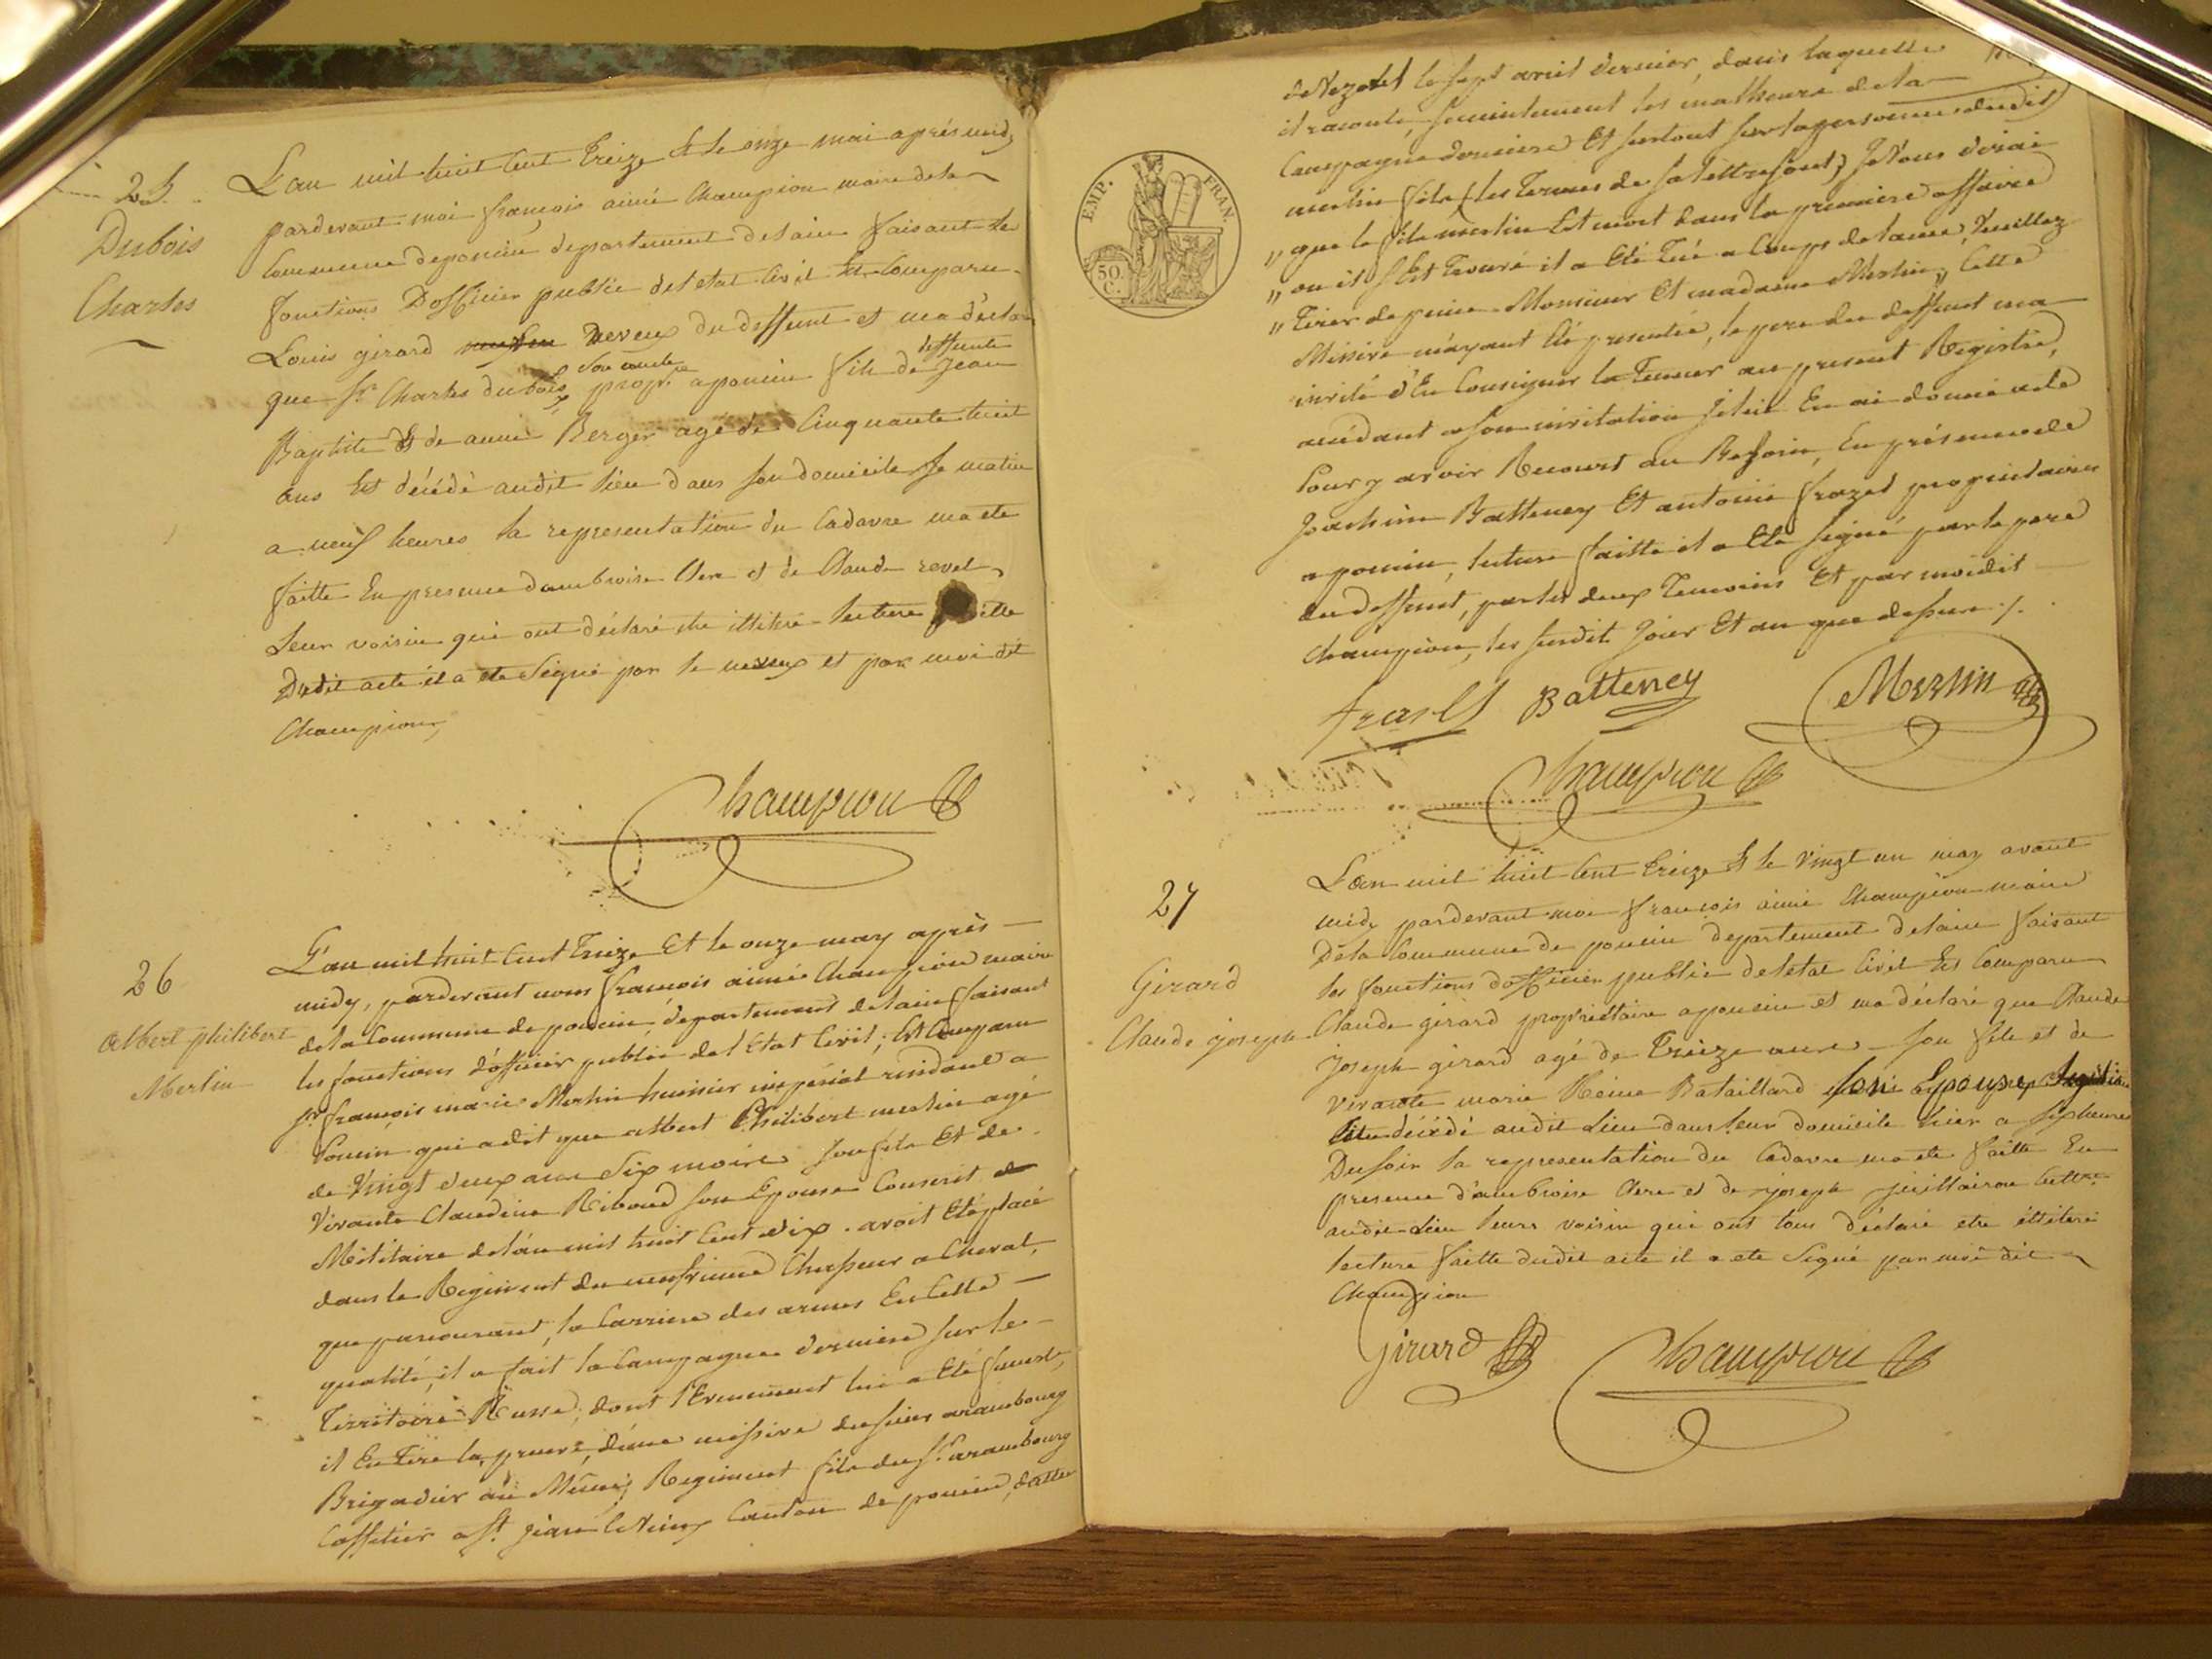 25.
Dubois
Charles
L'an mil huit Cent Treize Et le onze mai après midy
pardevant moi françois aimé Champion maire dela
Commune de poncin departement delain faisant les
fonctions D'officier public del'etat Civil Est Comparu
Louis girard neveux du deffunt et ma déclaré
que Sr Charles dubois, son oncle propre a poncin fils de deffunts Jean
Baptiste Et de anne Berger agé de Cinquante huit
ans Est décédé audit lieu dans son domicile ce matin
a neuf heures la representation du Cadavre ma ete
faitte En presence dambroise Clere et de Claude revel
Leur voisin qui ont déclaré etre illitéré lecture faitte
Dudit acte il a ete Signé par le neveux et par moi dit
Champion
Champion
26
albert philibert
Merlin
L'an mil huit Cent Treize Et le onze may après
midy, pardevant nous françois aimé Champion maire
dela Commune de poncin, departement delain faisant
les fonctions d'officier public del'Etat Civil; Est Comparu
Sr françois marie Merlin huissier impérial residant a
Poncin qui a dit que albert Philibert merlin agé
de Vingt deux ans Six mois Son fils Et de
Vivante Claudine Riboud son Epouse Conscrit
Militaire del'an mil huit Cent dix. avoit Eté placé
dans le Regiment du neufvieme Chasseur a Cheval,
que parcourant, la Carriere des armes En Cette
qualité, il a fait la Campagne derniere sur le
Territoire Russe, dont l'Evenement lui a Eté funeste,
il En Tire la preuve, d'une missive du sieur arambourg
Brigadier au Même Regiment fils du Sr arambourg
Caffetier a St jean le Vieux Canton de poncin, datée
EMP. FRAN.
50.
C.
de Vezotel le sept avril dernier, dans laquelle
il raconte, succintement les malheurs dela
Campagne derniere Et surtout sur la personne dudit
merlin fils (les Termes de sa lettre sont) Je Vous dirai
" que le fils merlin Est mort dans la premiere affaire
" ou il s'Est Trouvé il a Eté Tué a Coups de lance, Veuillez
" Tirer de peine Monsieur Et madame Merlin" Cette
Missive m'ayant Eté presentée, le pere du deffunt ma
invité d'En Consigner la Teneur au present Registre,
accédant a son invitation je lui En ai donné acte
Pour y avoir Recours au Besoin, En présence de
Joachim Batteney Et antoine frazet proprietaires
a poncin, lecture faitte il a Eté signé par le pere
du deffunt, par les deux Temoins Et par moidit
Champion, les susdit Jour Et an que dessus /.
Batteney
Merlin
Champion
27
Girard
Claude joseph
L'an mil huit Cent Treize Et le Vingt un may avant
midy pardevant moi françois aimé Champion maire
Dela Commune de poncin departement delain faisant
les fonctions dofficier public deletat Civil Est Comparu
Claude girard propriétaire a poncin et ma déclaré que Claude
joseph girard agé de Treize ans Son fils et de
vivante marie Reine Bataillard son Epouse
Est décédé audit Lieu dans leur domicile hier a six heures
Du soir la representation du Cadavre ma ete faitte En
presence d'ambroise Clere et de joseph
audit Lieu leurs voisin qui ont tous déclaré etre illiteré
lecture faitte dudit acte il a ete Signé par moi dit
Champion
Girard
Champion